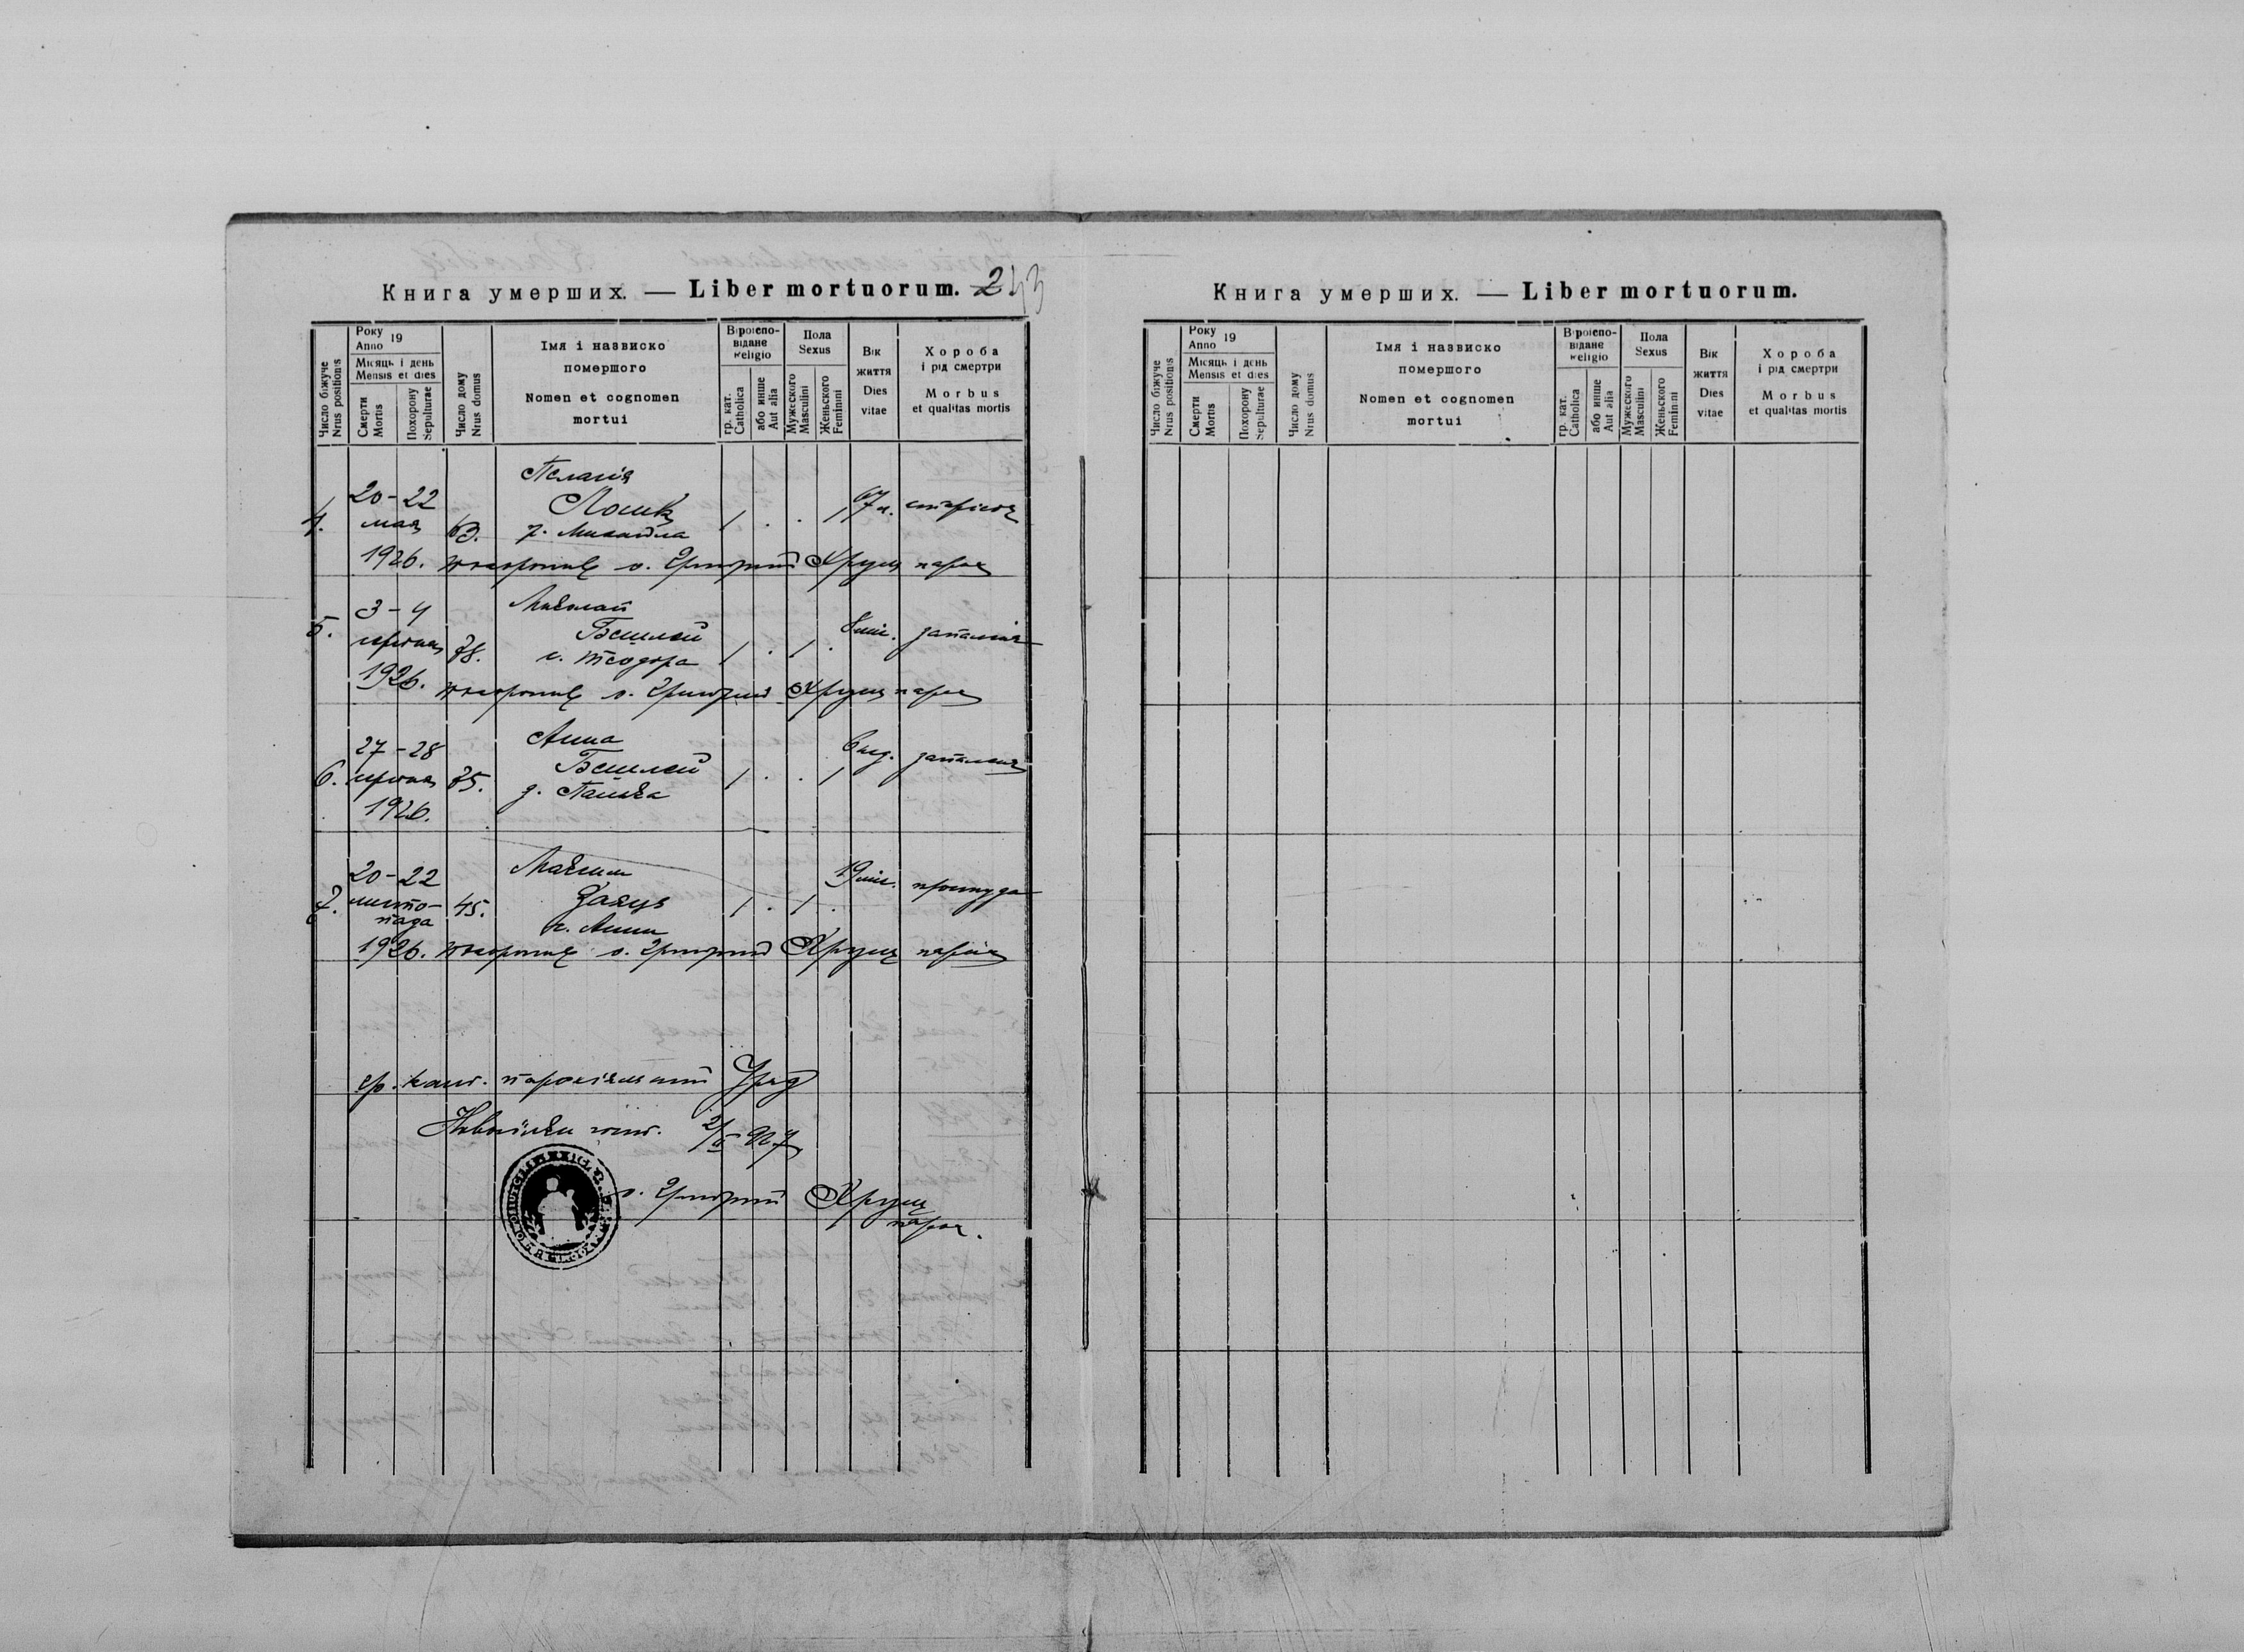 Книга умерших. — Liber mortuorum. 253
Число біжуче
Nrus positionis
Року
Anno 19
Місяць і день
Mensis et dies
Смерти
Mortis
Похорону
Sepulturae
Число дому
Nrus domus
Імя і назвиско
помершого
Nomen et cognomen
mortui
Віроіспо-
відане
Religio
гр. кат.
Catholica
або инше
Aut alia
Пола
Sexus
Мужеского
Masculini
Женьского
Feminini
Вік
життя
Dies
vitae
Хороба
і рід смертри
Morbus
et qualitas mortis
Пелагія
4. 20-22 мая 63. Лоик 1 . . 1 67 л. старість
р. Михайла
1926. похоронив о. Григорий Хрущ парох
Николай
5. 3-4 червня 78. Бешлей 1 . 1 . 8 міс. запаленя
с. Теодора
1926. похоронив о. Григорий Хрущ парох
Анна
6. 27-28 червня 75. Бешлей 1 . . 1 6 нед. запаленя
д. Панька
1926.
Максим
7. 20-22 листо-
пада 45. Заяць 1 . 1 . 19 міс. простуда
с. Анни
1926. похоронив о. Григорий Хрущ парох
гр. кат. парохіяльний Уряд
2/II 927
о. Григорий Хрущ
парох.
Книга умерших. — Liber mortuorum.
Число біжуче
Nrus positionis
Року
Anno 19
Місяць і день
Mensis et dies
Смерти
Mortis
Похорону
Sepulturae
Число дому
Nrus domus
Імя і назвиско
помершого
Nomen et cognomen
mortui
Віроіспо-
відане
Religio
гр. кат.
Catholica
або инше
Aut alia
Пола
Sexus
Мужеского
Masculini
Женьского
Feminini
Вік
життя
Dies
vitae
Хороба
і рід смертри
Morbus
et qualitas mortis